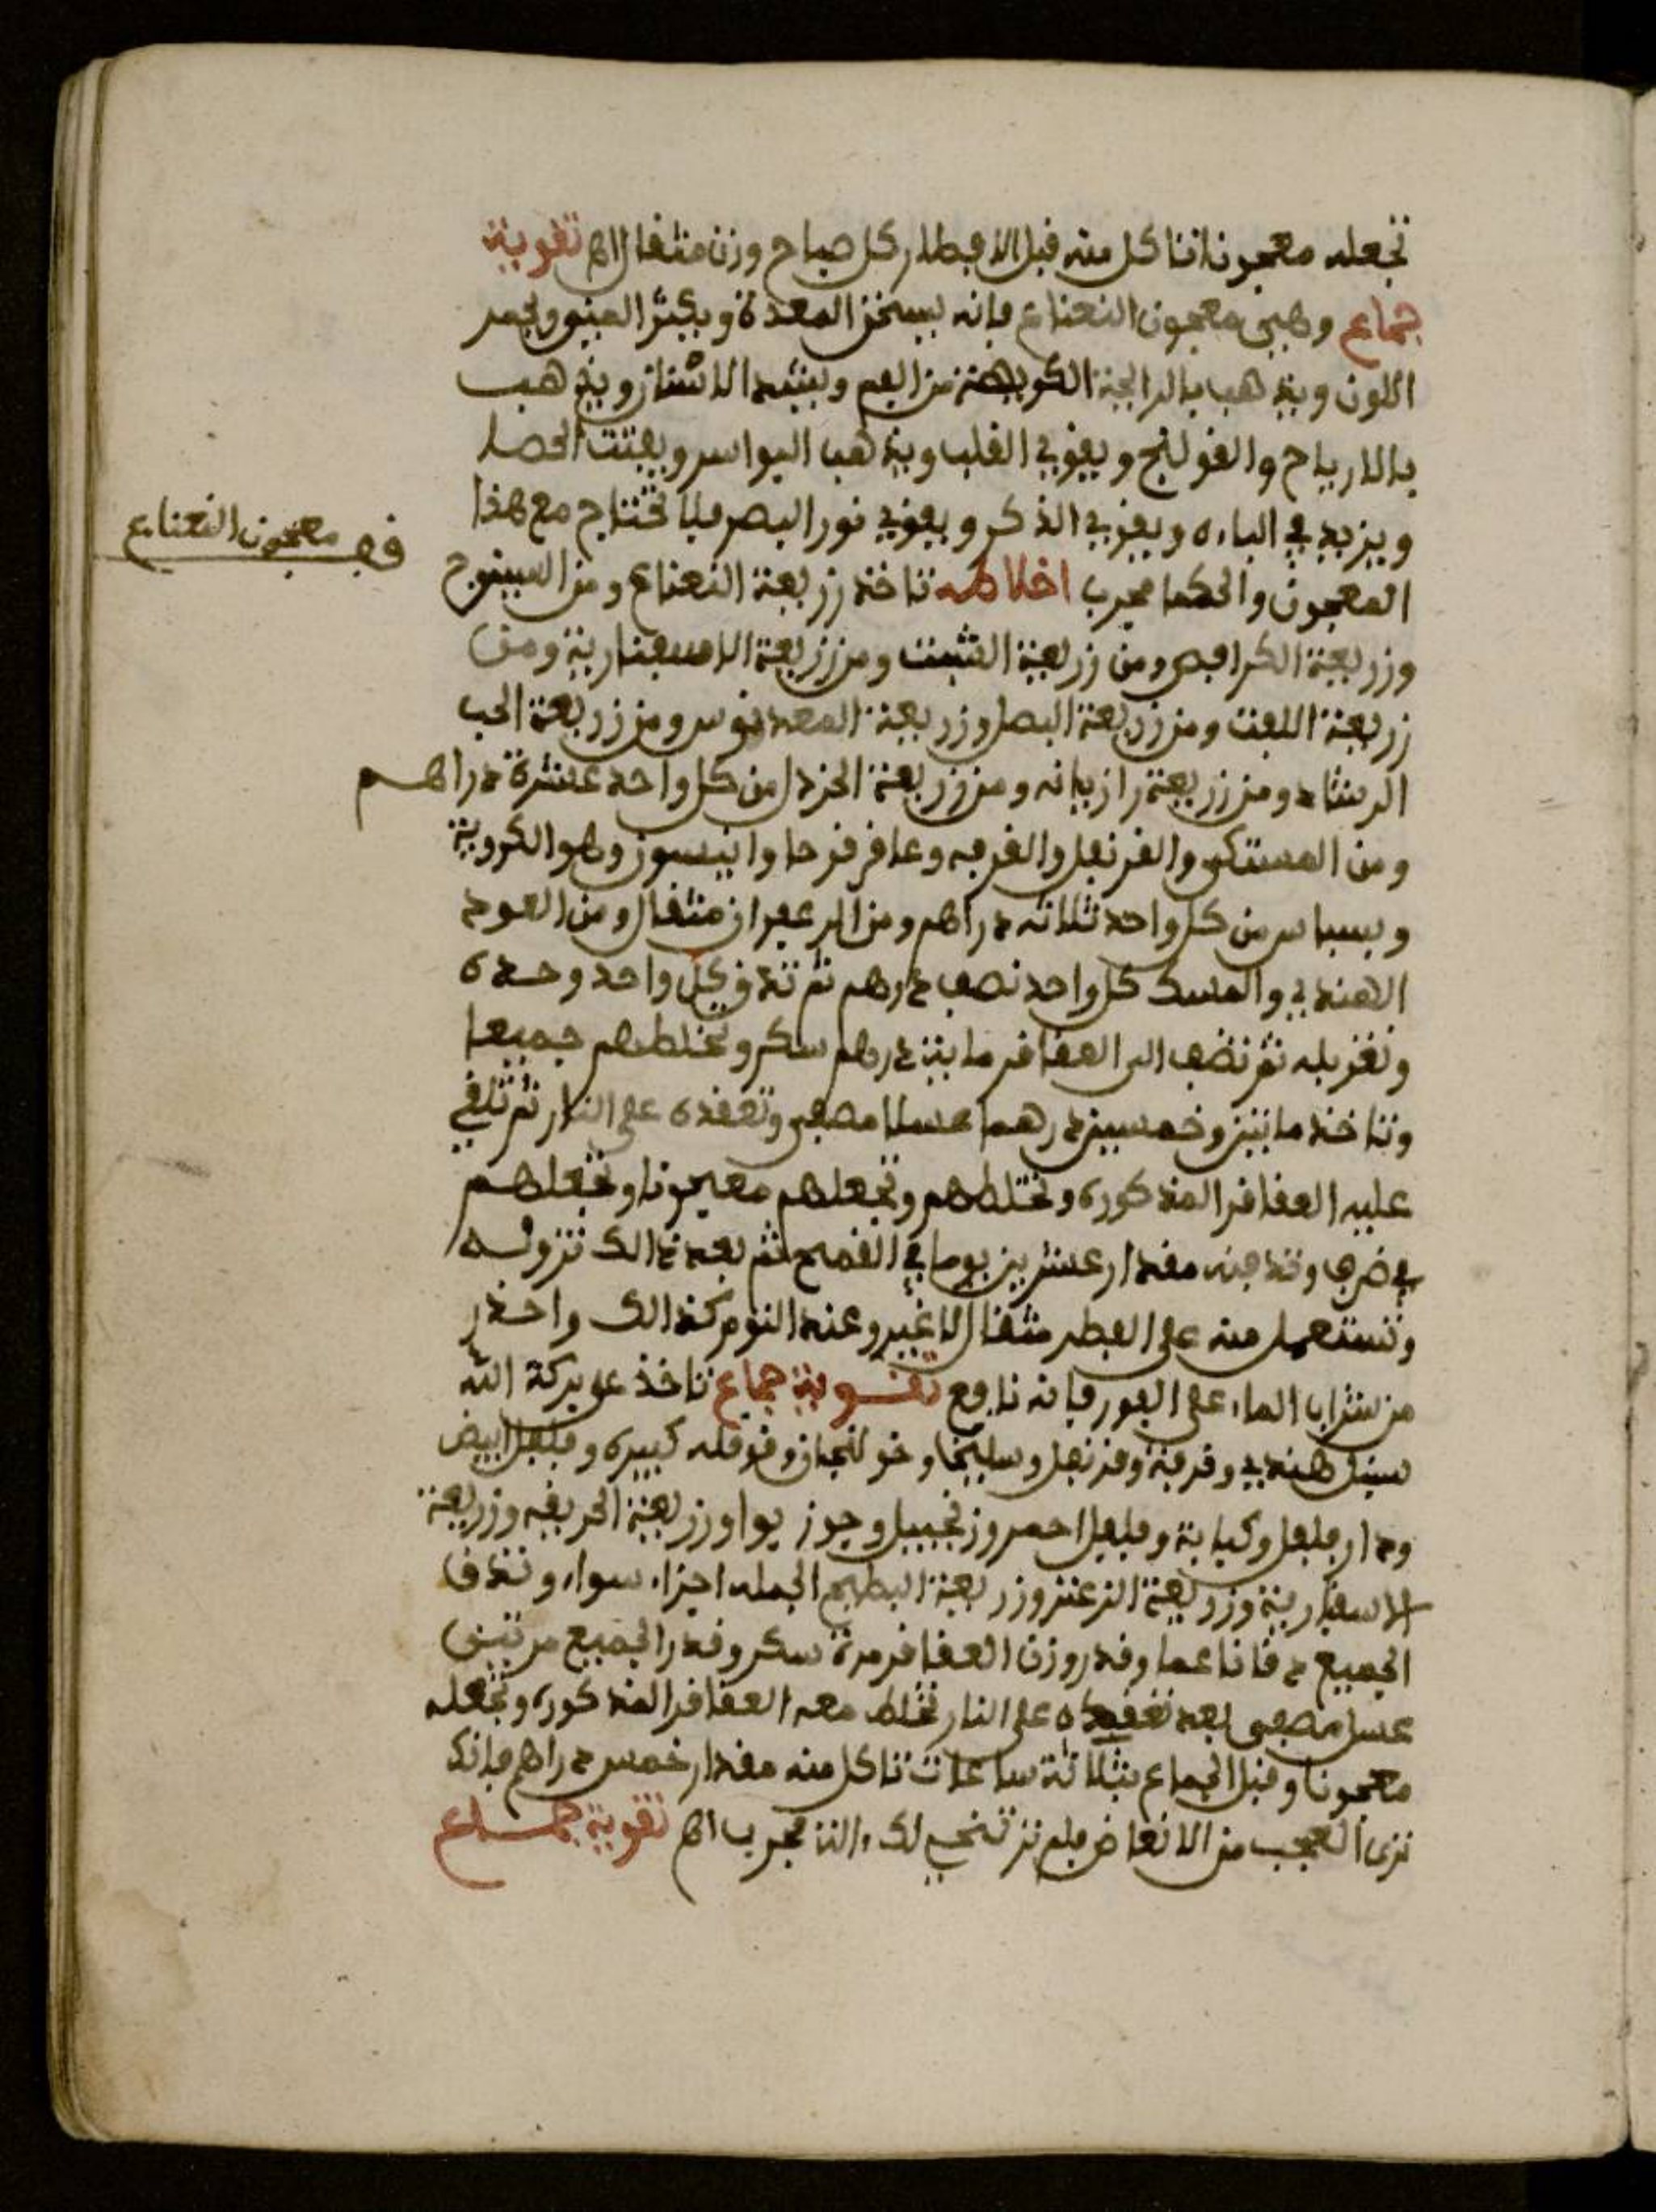 تجعله معجونا تاكل منه قبل الافطار كل صباح وزن مثقال اهـ تقوية
جماع وهيى معجون النعناع فإنه يسخن المعدة ويكثر المنى ويحمر
اللون ويذهب بالرايحة الكريهة من الفم ويشد الاسنان ويذهب
بالارياح والقولنج ويقوي القلب ويذهب البواسر ويفتت الحصا
ويزيد في الباءه ويقوي الذكر ويقوي نور البصر فلا تحتاج مع هذا
فى معجون النعناع
المعجون والحكما مجرب اخلاطه تاخذ زريعة النعناع ومن البسنوج
وزريعة الكرافص ومن زريعة الشبت ومن زريعة الاسفنارية ومن
زريعة اللفت ومن زريعة البصل وزريعة المعدنوس ومن زريعة الحب
الرشاد ومن زريعة رازيانه ومن زريعة الخردل من كل واحد عشرة دراهم
ومن المستكى والقرنفل والقرفه وعاقر قرحا وانيسون وهو الكروية
وبسباس من كل واحد ثلاثه دراهم ومن الزعفران مثقال ومن العود
الهندي والمسك كل واحد نصف درهم ثم تدق كل واحد وحده
وتغربله ثم تضف الى العقاقر مايتن درهم سكر وتخلطهم جميعا
وتاخذ مايتن وخمسين درهما عسلا مصفى وتعقده على النار ثم تلقي
عليه العقاقر المذكوره وتختلطهم وتجعلهم معجونا وتجعلهم
في ضرف وتدفنه مقدار عشرين يوما في القمح ثم بعد ذالك تزوله
وتستعمل منه على الفطر مثقال لا غير وعند النوم كذالك واحذر
من شراب الماء على الفور فإنه نافع تقوية جماع تاخذ على بركة الله
سنبل هندي وقرفة وقرنفل وسليخا وخولنجان وقوقله كبيره وفلفل ابيض
ودار فلفل وكبابة وفلفل احمر وزنجبيل وجوز بوا وزريعة الحريقه وزريعة
الاسفنارية وزريعة الزعتر وزريعة البطيح الجمله اجزاء سواء وتدق
الجميع دقا ناعما وقدر وزن العقاقر مرة سكر وقدر الجميع مرتين
عسل مصفى بعد تعقيده على النار تخلط معه العقاقر المذكوره وتجعله
معجونا وقبل الجماع بثلاثة ساعات تاكل منه مقدار خمس دراهم فإنك
ترى العجب من الانعاض فلم تر تنحي لك مجرب اهـ تقوية جماع